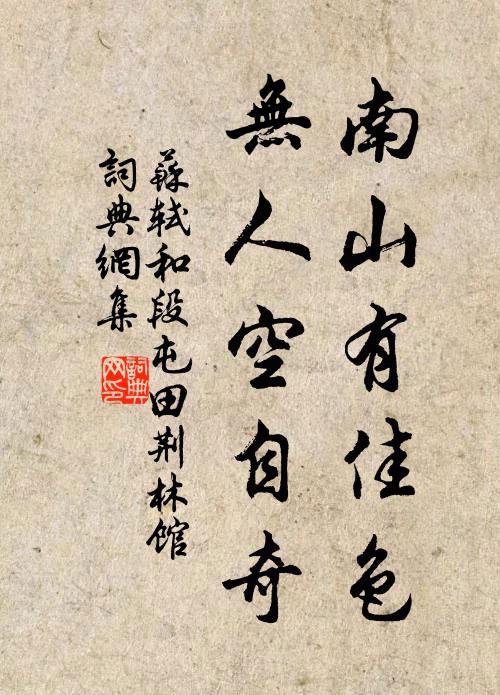 南山有佳色
無人空自奇
蘇軾和段屯田荆林馆
詞典網集
詞典網印